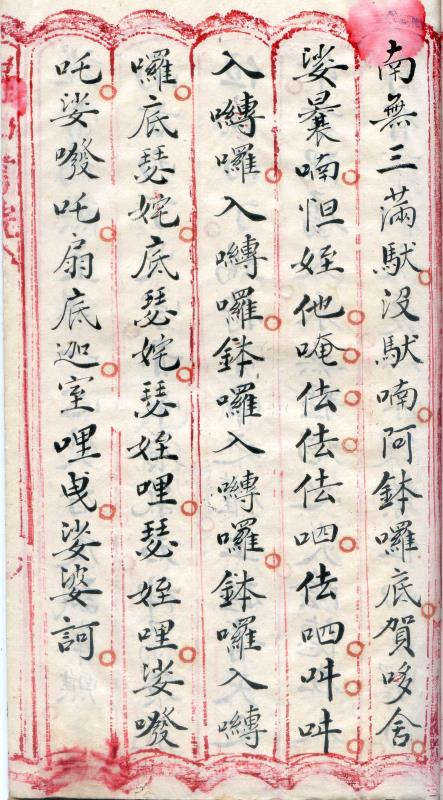 南無三滿馱沒馱喃阿鉢囉底賀哆舍
娑曩喃怛姪他唵佉佉佉呬佉呬吽吽
入嚩囉入嚩囉鉢囉入嚩囉鉢囉入嚩
囉底瑟姹底瑟姹瑟姪哩瑟姪哩娑𠾐
吒娑𠾐吒扇底迦室哩曳娑婆訶